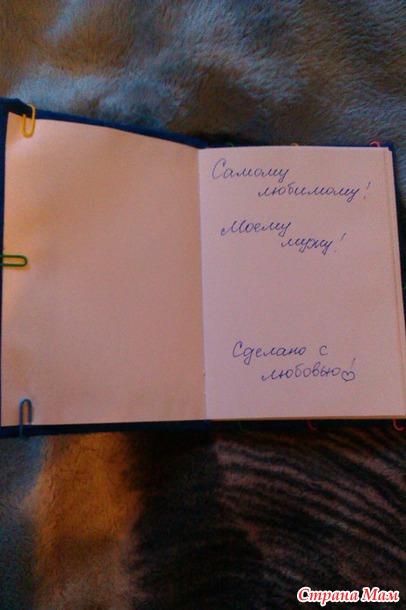 Самому
любимому!
Моему
мужу!
Сделано с
любовью!
Страна Мам